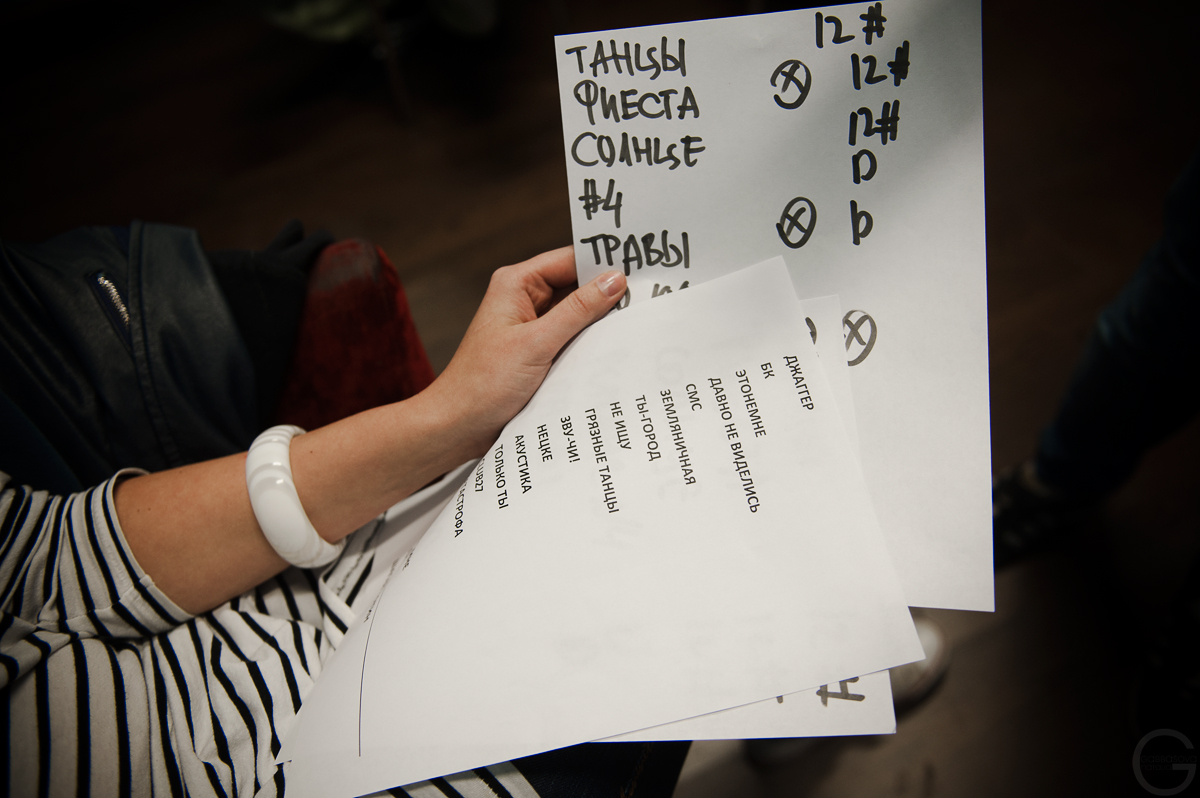 ТАНЦЫ 12#
ФИЕСТА 12#
СОЛНЦЕ 12#
#4 D
ТРАВЫ b
ДЖАГГЕР
БК
ЭТОНЕМНЕ
ДАВНО НЕ ВИДЕЛИСЬ
СМС
ЗЕМЛЯНИЧНАЯ
ТЫ-ГОРОД
НЕ ИЩУ
ГРЯЗНЫЕ ТАНЦЫ
ЗВУ-ЧИ!
НЕЦКЕ
АКУСТИКА
ТОЛЬКО ТЫ
G